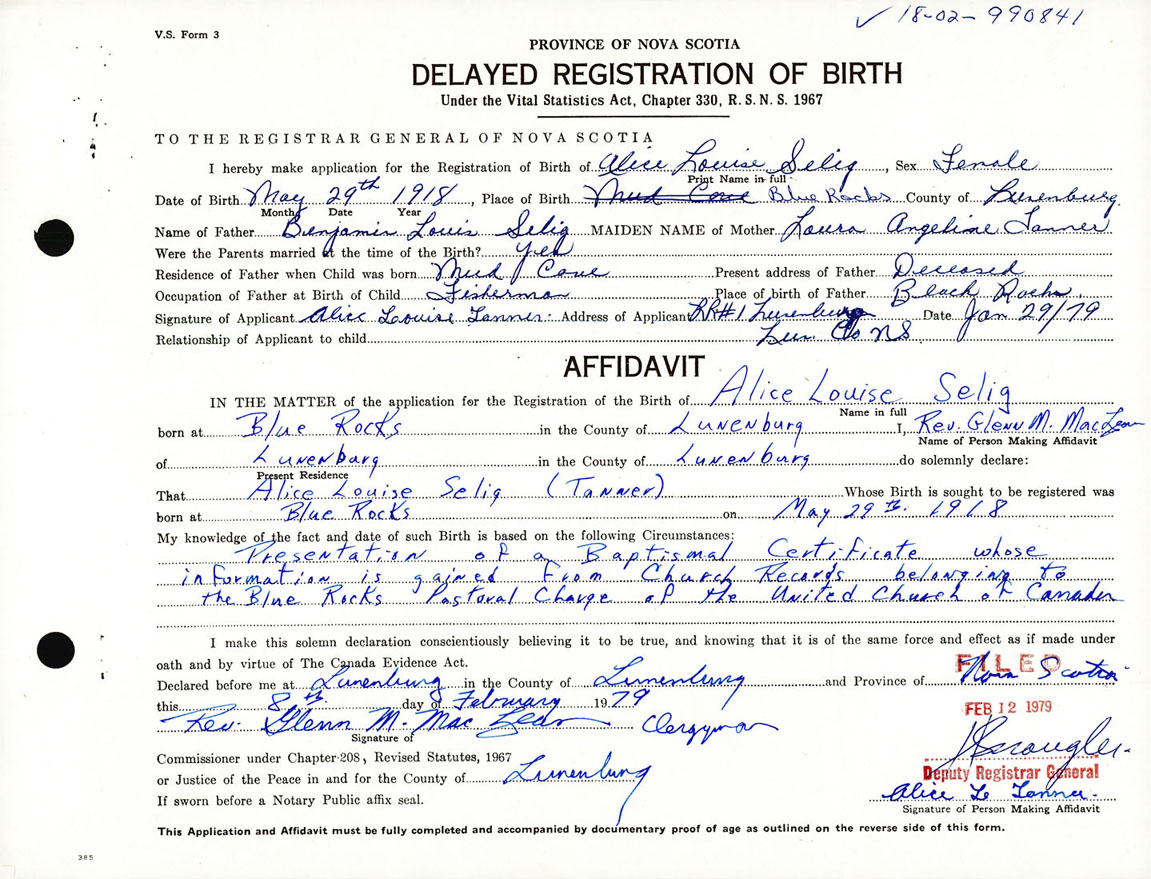 ✓ 18-02-990841
V.S. Form 3
PROVINCE OF NOVA SCOTIA
DELAYED REGISTRATION OF BIRTH
Under the Vital Statistics Act, Chapter 330, R. S. N. S. 1967
TO THE REGISTRAR GENERAL OF NOVA SCOTIA
I hereby make application for the Registration of Birth of Alice Louise Selig, Sex Female
Print Name in full
Date of Birth May 29th 1918, Place of Birth Mud Cove Blue Rocks County of Lunenburg
Month Date Year
Name of Father Benjamin Louis Selig MAIDEN NAME of Mother Laura Angeline Tanner
Were the Parents married at the time of the Birth? yes
Residence of Father when Child was born Mud Cove Present address of Father Deceased
Occupation of Father at Birth of Child Fisherman Place of birth of Father Black Rocks
Signature of Applicant Alice Louise Tanner Address of Applicant RR#1 Lunenburg Date Jan 29/79
Relationship of Applicant to child Lun. Co NS
AFFIDAVIT
IN THE MATTER of the application for the Registration of the Birth of Alice Louise Selig
Name in full
born at Blue Rocks in the County of Lunenburg I, Rev. Glenn M. MacLean
Name of Person Making Affidavit
of Lunenburg in the County of Lunenburg do solemnly declare:
Present Residence
That Alice Louise Selig (Tanner) Whose Birth is sought to be registered was
born at Blue Rocks on May 29th 1918
My knowledge of the fact and date of such Birth is based on the following Circumstances:
Presentation of a Baptismal Certificate whose
information is gained from Church Records belonging to
the Blue Rocks Pastoral Charge of the United Church of Canada
I make this solemn declaration conscientiously believing it to be true, and knowing that it is of the same force and effect as if made under
oath and by virtue of The Canada Evidence Act.
FILED
Declared before me at Lunenburg in the County of Lunenburg and Province of Nova Scotia
this 8th day of February 1979
FEB 12 1979
Rev. Glenn M. MacLean Clergyman
Signature of
Commissioner under Chapter 208, Revised Statutes, 1967
or Justice of the Peace in and for the County of Lunenburg
Deputy Registrar General
Alice L Tanner
If sworn before a Notary Public affix seal.
Signature of Person Making Affidavit
This Application and Affidavit must be fully completed and accompanied by documentary proof of age as outlined on the reverse side of this form.
385